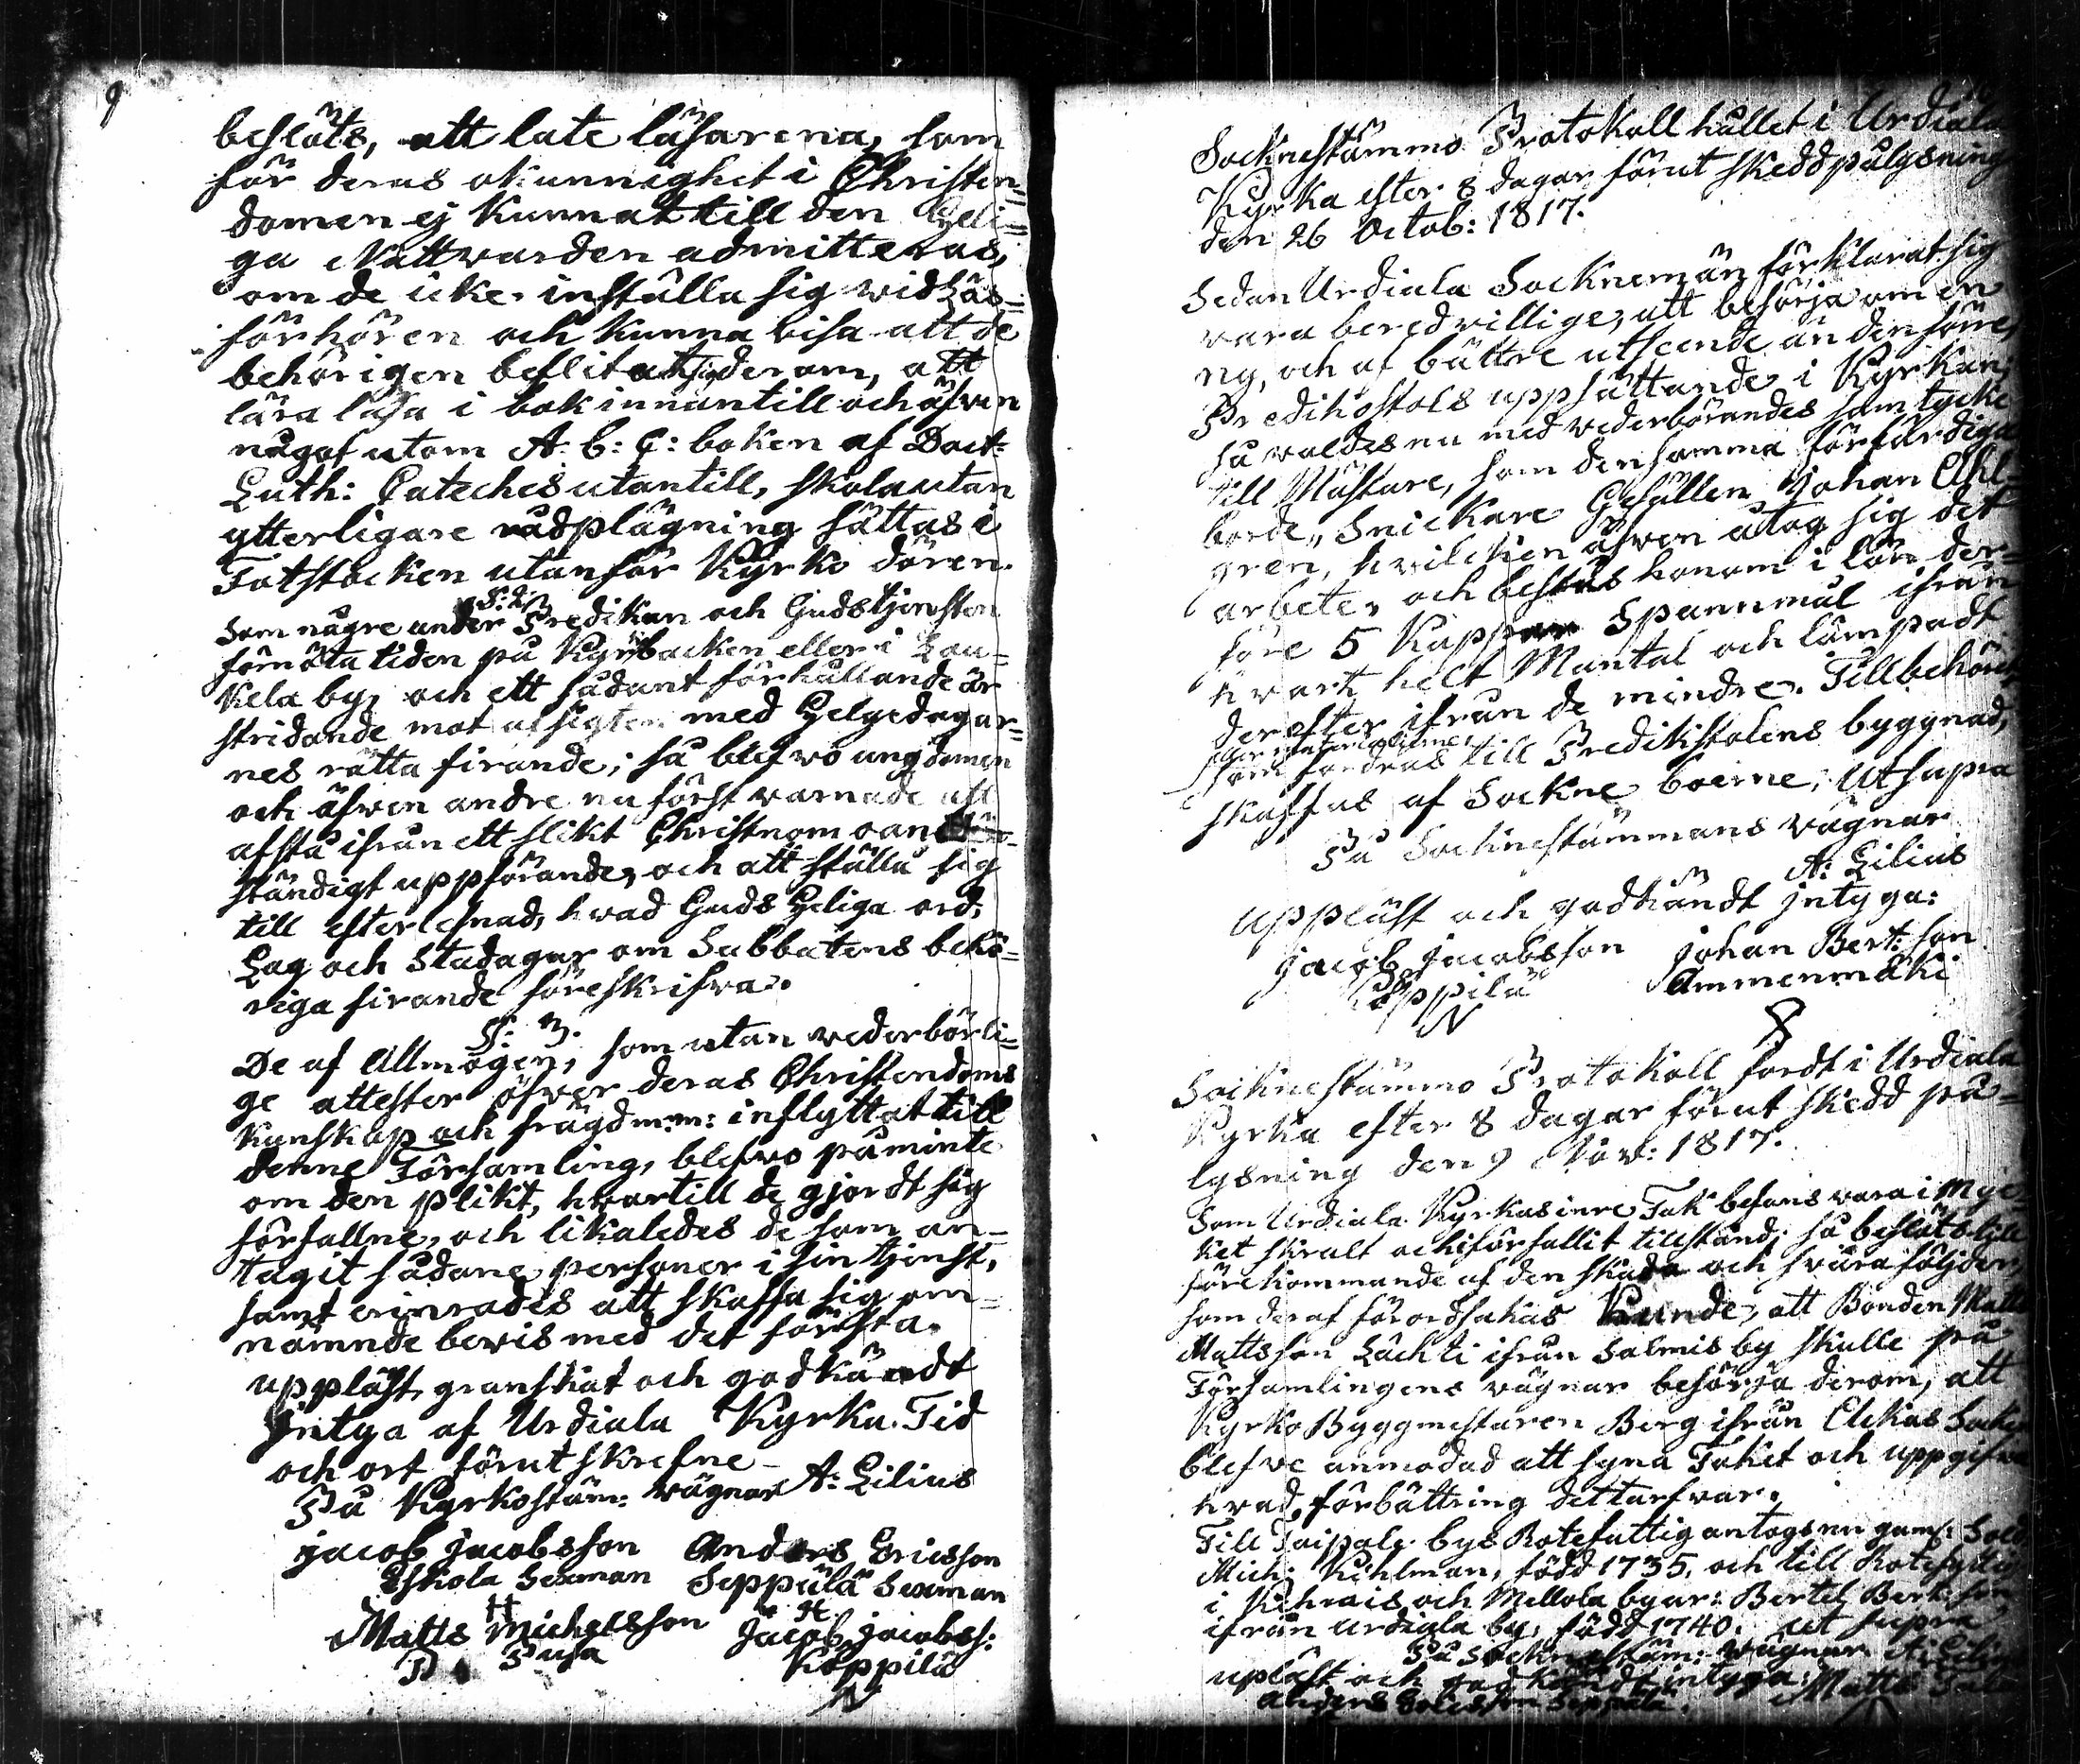 9
beslöts, att late läsarena, som
för deras okunnighet i Christen=
domen ej kunnat till den Heli=
ga Nattvarden admitteras,
om de icke inställa sig wid Läs=
förhören och kunna visa att de
behörigen beflitat sig derom, att
lära läsa i bok innantill och äfven
något utom A. b: c: boken af Doct:
Luth: Cateches utantill, skola utan
ytterligare rådplägning sättas i
Fotstocken utanför Kyrko dören.
§: 2.
Som någre under Predikan och Gudstjensten
förnöta tiden på Kyrkbacken eller i Lau=
kela by, och ett sådant förhållande är
stridande mot afsigten med Helgedagar=
nes rätta firande; så blefwo ungdomen
och äfwen andre nu först varnade att
afstå ifrån ett slikt Christnom oan=
ständigt uppförande, och att ställa sig
till efterlefnad, hwad Guds Heliga ord,
Lag och Stadagar om Sabbatens behö=
riga firande föreskrifva.
§: 3.
De af Allmogen, som utan vederbörli=
ge attester öfwer deras Christendoms
kunskap och frägd m:m: inflyttat till
denne Församling, blefwo påminte
om den plikt, hvartill de gjordt sig
förfallne, och likaledes de som an=
tagit sådane personer i sin tjenst,
samt erinrades att skaffa sig om=
nämnde bevis med det första.
uppläst, granskat och godkändt
Jntyga af Urdiala Kyrka. Tid
och ort förut skrefne
På Kyrkostäm: vägnar A: Lilius
Jacob Jacobsson Anders Ericsson
Eskola Sexman Seppälä Sexman
Matts Michelsson Jacob Jacobss:
PusaKöppilä
N
Socknestämmo Protokoll hållet i Urdiala
Kyrka efter 8 dagar förut skedd pålysning
den 26 Octob: 1817.
Sedan Urdiala Socknemän förklarat sig
vara beredvillige, att besörja om en
ny, och af bättre utseende än den förre,
Predikostols uppsättande i Kyrkan;
så valdes nu med vederbörandes samtycke
till Mästare, som densamma förfärdiga
borde, Snickare Gesällen Johan Ahl=
gren, hvilcken äfven åtog sig det
arbete, och bestås honom i lön der=
före 5 Kappar Spannmål ifrån
hvart helt Mantal och lämpadt
derefter ifrån de mindre. Tillbehör
som fordras till Predikstolens byggnad,
skaffas af Sockne boerne, Ut supra
På Socknestämmans vägnar
A: Lilius
Uppläst och godkändt jntyga:
Jacob Jacobsson Johan Bert:son
Köppilä Ammenmäki
N
Socknestämmo Protokoll fördt i Urdiala
Kyrka efter 8 dagar förut skedd på=
lysning den 9 Nov: 1817.
Som Urdiala Kyrkas inre Tak befans vara i myc=
ket skralt och förfallit tillstånd; så beslöts till
förekommande af den skada och svåra följder,
som deraf förordsakas kunde, att Bonden Matts
Mattsson Lächti ifrån Salmis by skulle på
Församlingens vägnar besörja derom, att
KyrkoByggmestaren Berg ifrån Ackas Socken
blefve anmodad att syna Taket och uppgifva
hvad förbättring det tarfvar.
Till Taipale bys Rotefattig antogs nu gaml: Sold
Mich: Kihlman, född 1735. och till Rotefattig
i Kehrois och Mellola byar: Bertel Bert:son
ifrån Urdiala by, född 1740. ut supra
På Socknestäm: vägnar A: Lilius
upläst och godkändt intyga:
Anders Ericsson Seppälä. Matts